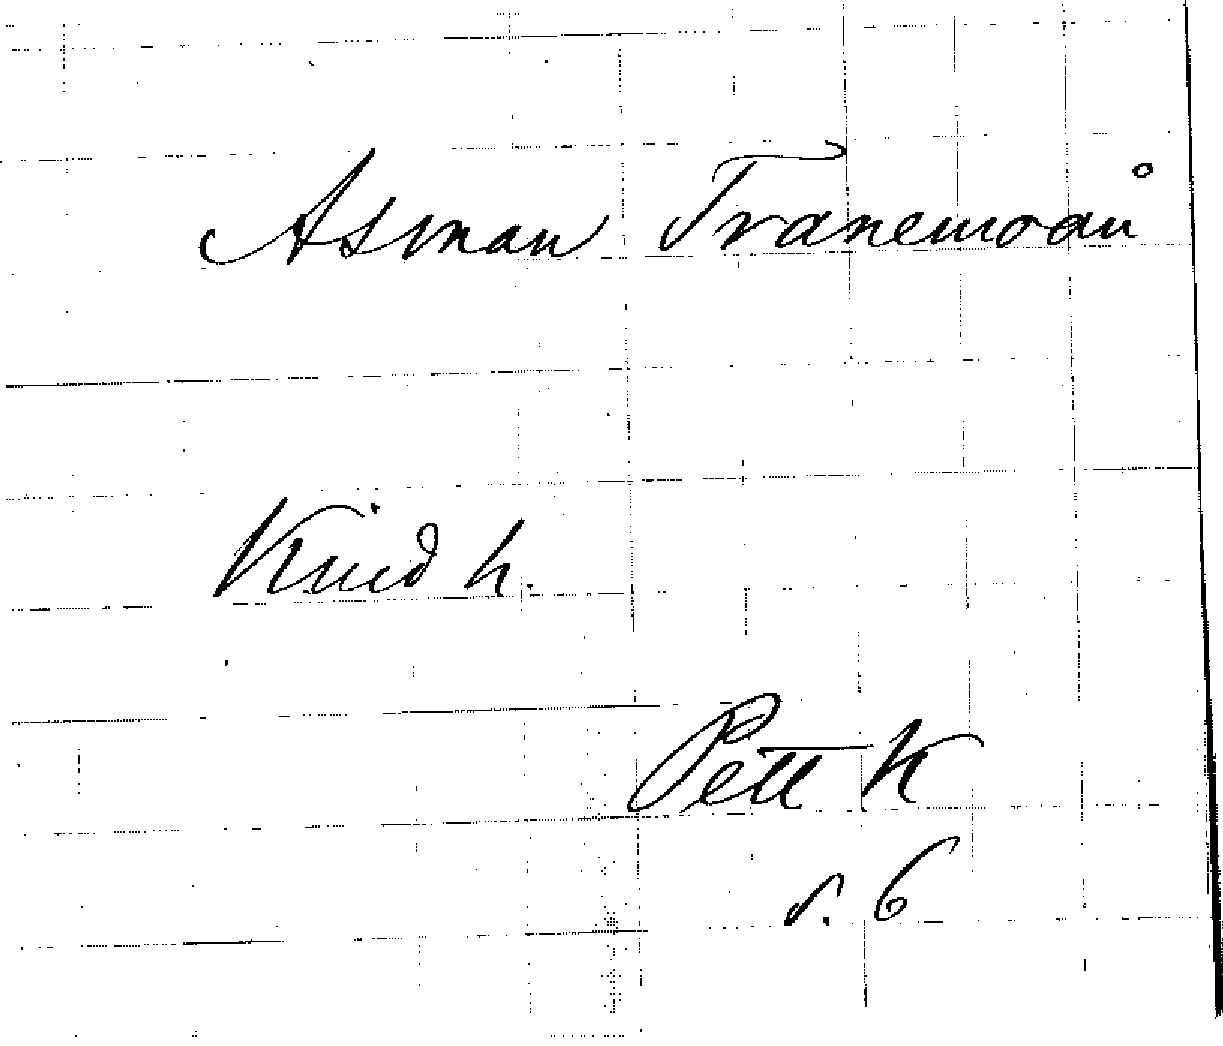 Asman Tranemoån
Kind h.
Pett K
s. 6